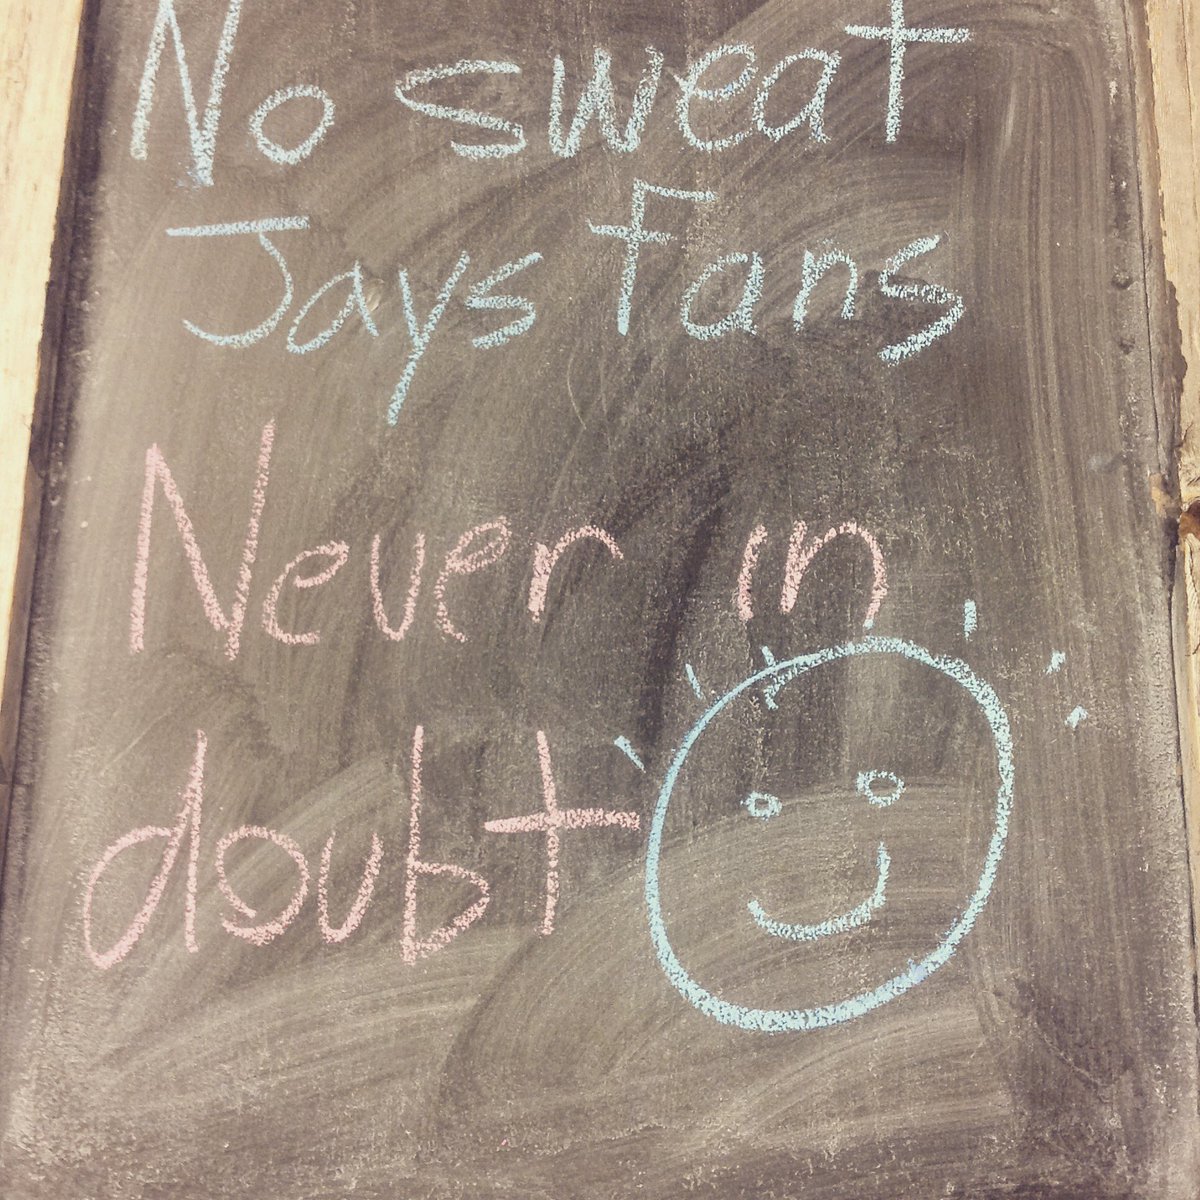 No sweat
Jays Fans
Never in
doubt